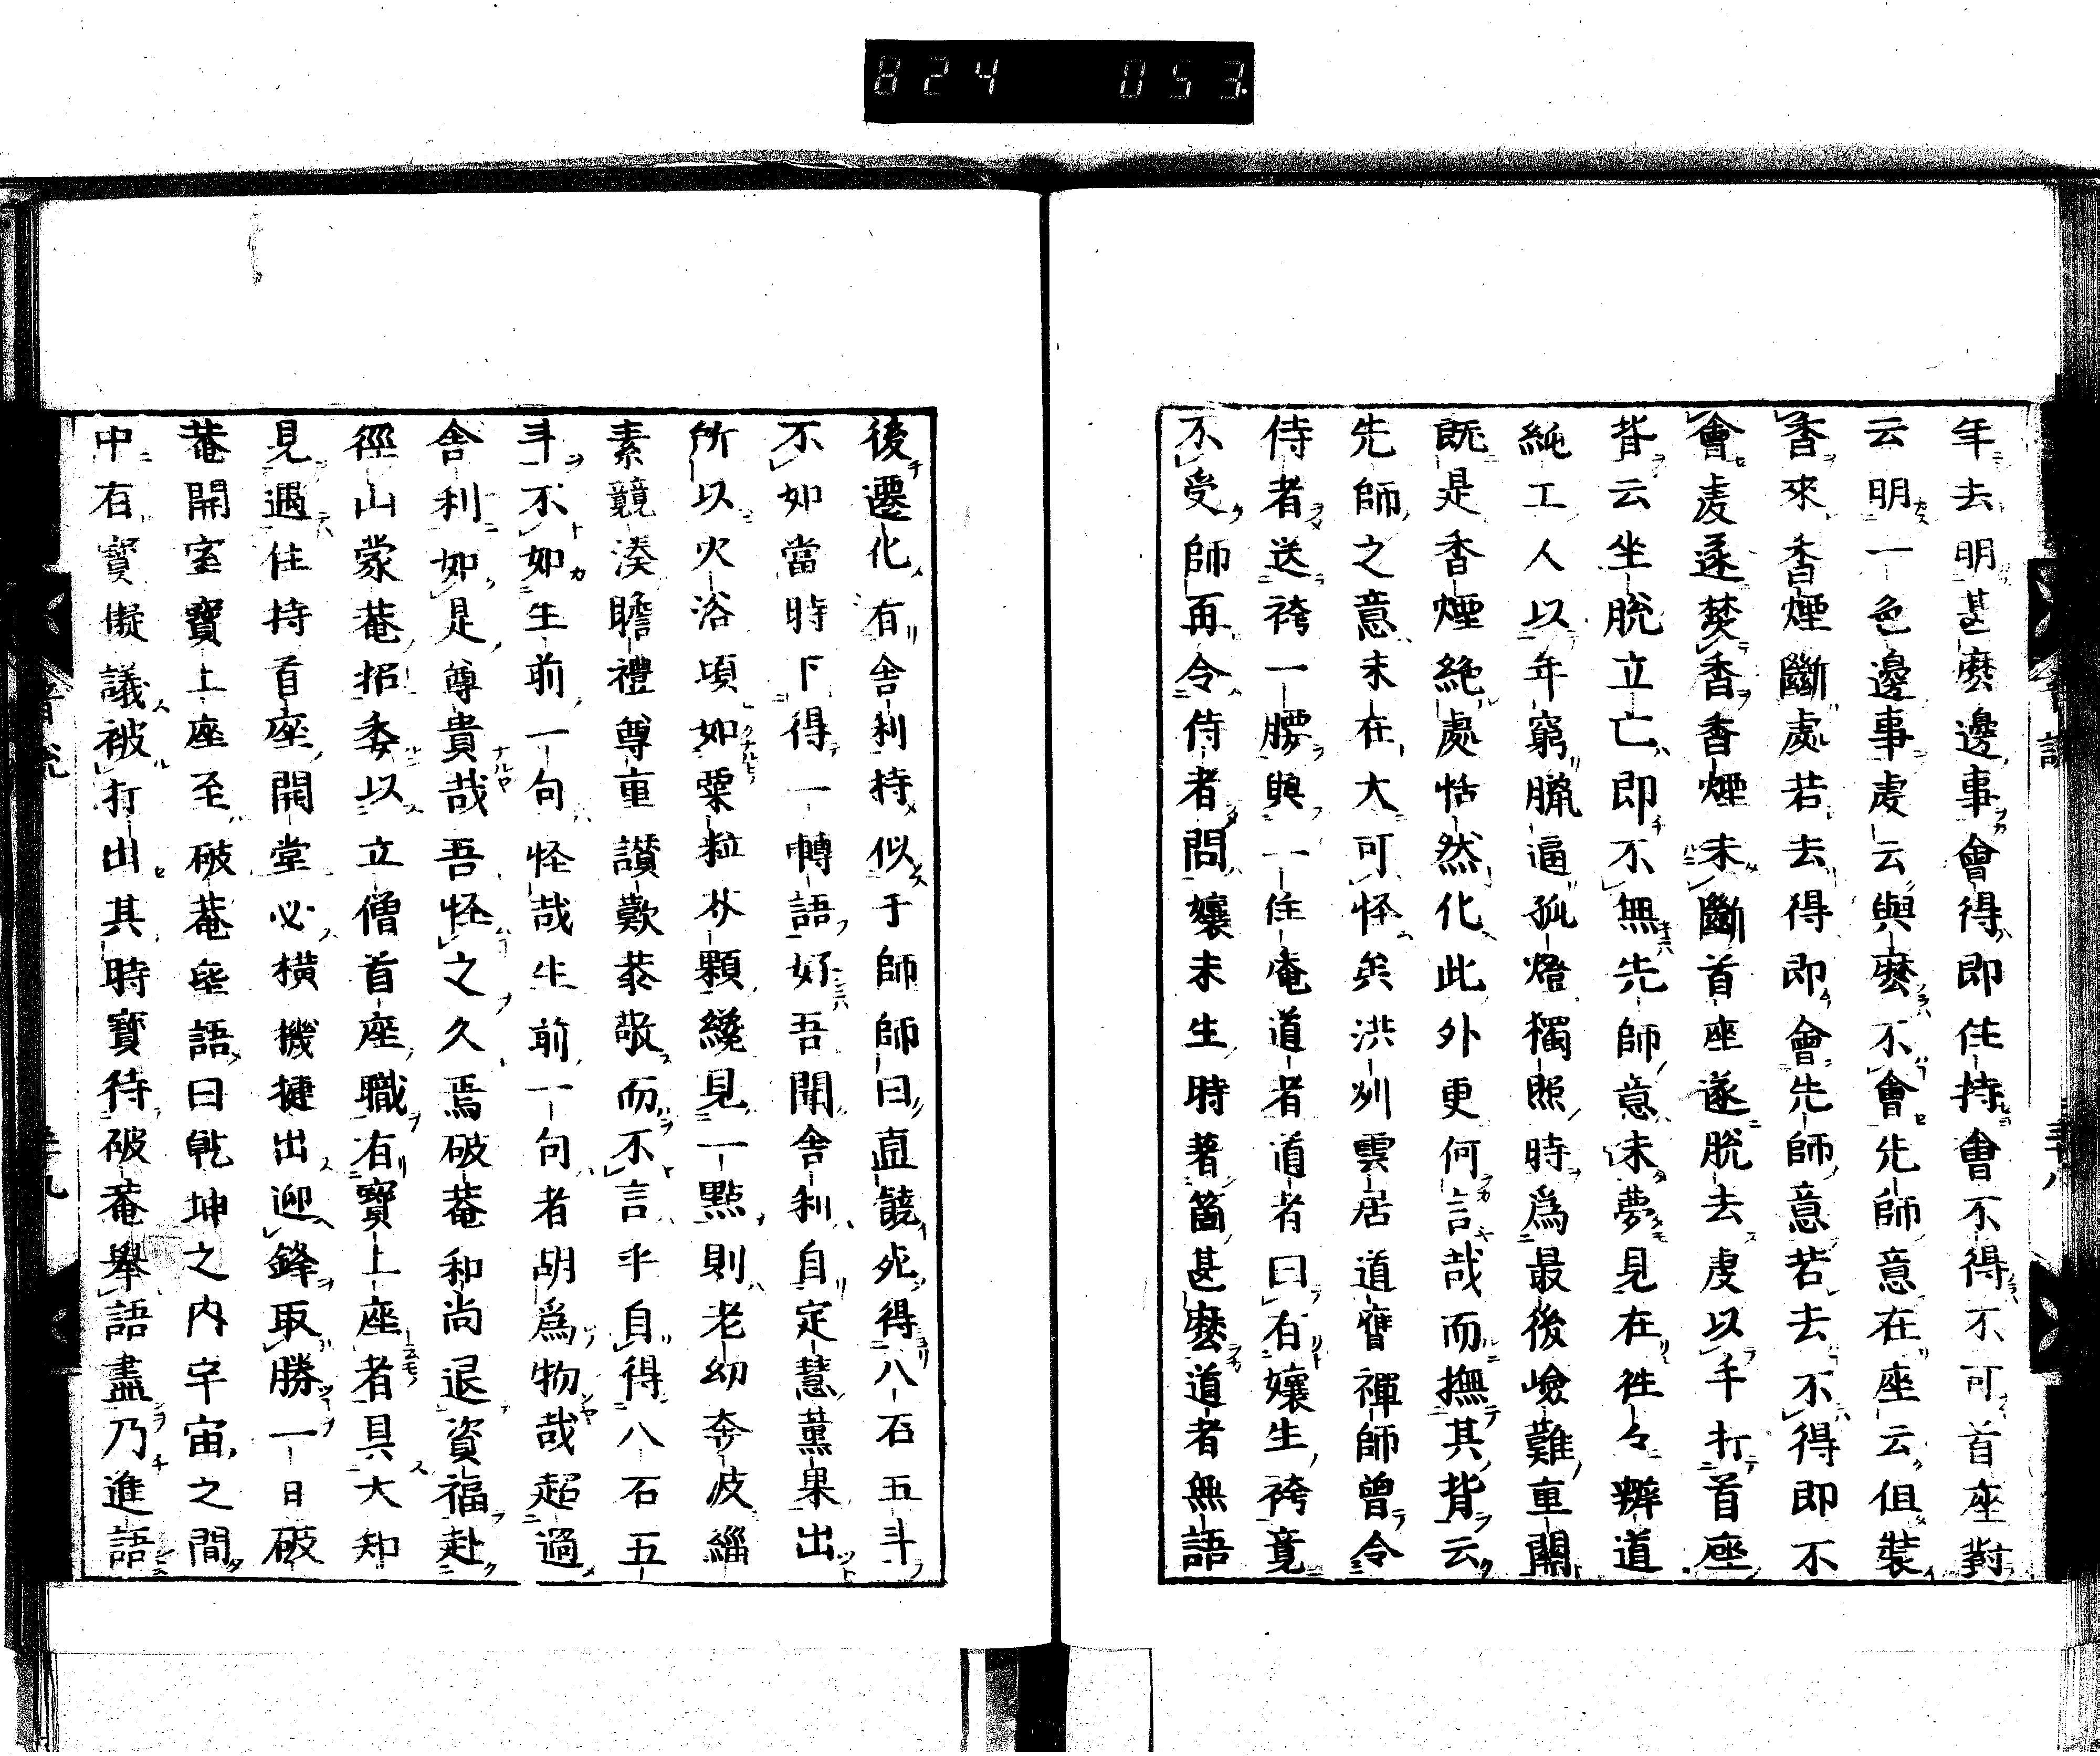 824 053
年去明甚麼邊事會得即住持會不得不可首座對
云明一色邊事處云與麼不會先師意在座云但裝
香來香煙斷處若去得即會先師意若去不得即不
會處遂焚香香煙未斷首座遂脫去處以手打首座
背云坐脫立亡即不無先師意未夢見在徃々辦道
純工人以年窮臘逼孤燈獨照時爲最後嶮難重關
既是香煙絶處恬然化此外更何言哉而撫其背云
先師之意未在大可怪矣洪州雲居道膺禪師曾令
侍者送袴一腰與一住庵道者道者曰有孃生袴竟
不受師再令侍者問孃未生時著箇甚麼道者無語
後遷化有舍利持似于師師曰直饒死得八石五斗
不如當時下得一轉語好吾聞舍利自定慧薫果出
所以火浴頃如粟粒芥顆纔見一點則老幼奔波緇
素競湊瞻禮尊重讃歎恭敬而不言乎自得八石五
斗不如生前一句怪哉生前一句者胡爲物哉超過
舍利如是尊貴哉吾怪之久焉破菴和尚退資福赴
徑山蒙菴招委以立僧首座職有寳上座者具大知
見遇住持首座開堂必横機捷出迎鋒取勝一日破
菴開室寳上座至破菴垂語曰乾坤之内宇宙之間
中有寳擬議被打出其時寳待破菴擧語盡乃進語